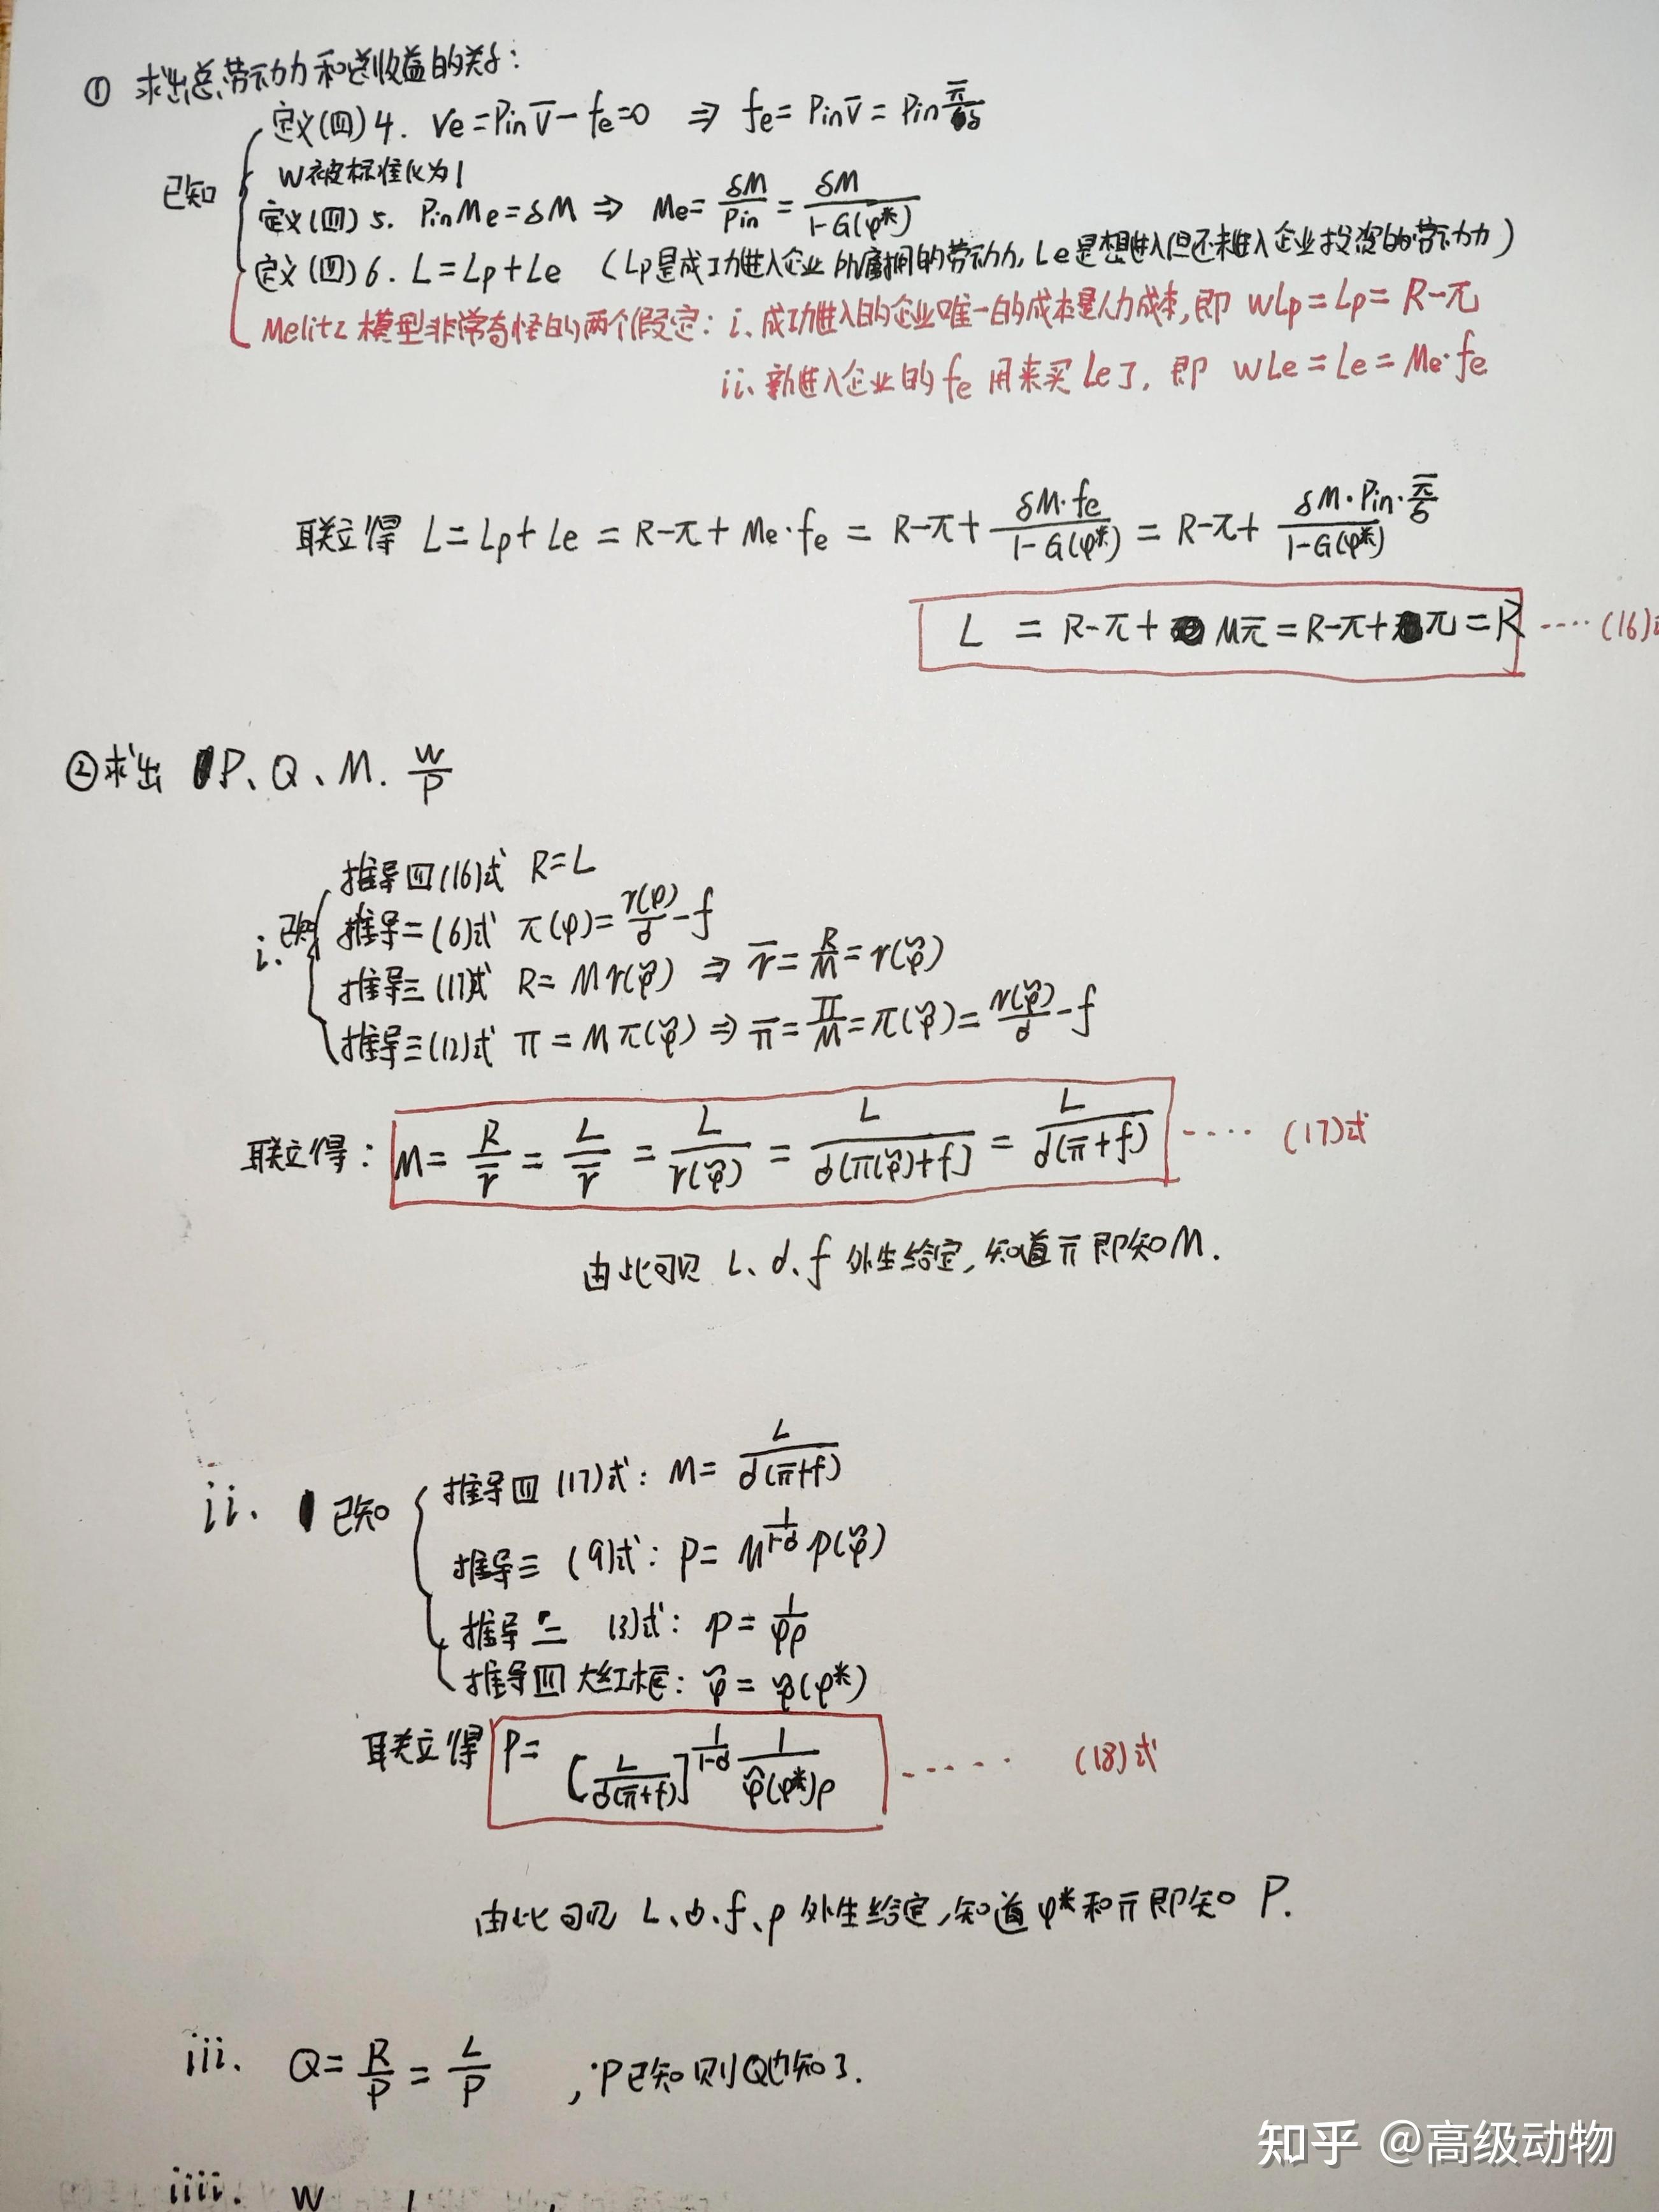 ① 求出总劳动力和总收益的关系:
定义(四)4. Ve=Pin V̄-fe=0 ⇒ fe=Pin V̄=Pin π̄/δ
已知
W被标准化为1
定义(四)5. Pin Me=δM ⇒ Me=δM/Pin=δM/(1-G(φ*))
定义(四)6. L=Lp+Le (Lp是成功进入企业所雇佣的劳动力, Le是想进入但还未进入企业投资的劳动力)
Melitz模型非常奇怪的两个假定: i. 成功进入的企业唯一的成本是人力成本, 即 wLp=Lp=R-π
ii. 新进入企业的 fe 用来买 Le了, 即 wLe=Le=Me·fe
联立得 L=Lp+Le=R-π+Me·fe=R-π+δM·fe/(1-G(φ*))=R-π+(δM·Pin·π̄/δ)/(1-G(φ*))
L=R-π+Mπ̄=R-π+π=R ····(16)
②求出 P、Q、M. W/P
推导四(16)式 R=L
i. 已知
推导二(6)式 π(φ)=r(φ)/σ-f
推导三(11)式 R=Mr(φ̃) ⇒ r̄=R/M=r(φ̃)
推导三(12)式 Π=Mπ(φ̃) ⇒ π̄=Π/M=π(φ̃)=r(φ̃)/σ-f
联立得: M=R/r̄=L/r̄=L/r(φ̃)=L/σ(π(φ̃)+f)=L/σ(π̄+f) ····(17)式
由此可见 L、σ、f 外生给定, 知道π̄即知M.
推导四(17)式: M=L/σ(π̄+f)
ii. 已知
推导三(9)式: P=M^(1/(1-σ)) p(φ̃)
推导二 (3)式: p=1/φρ
推导四大红框: φ̃=φ̃(φ*)
联立得 P=[L/σ(π̄+f)]^(1/(1-σ)) 1/φ̃(φ*)ρ ······ (18)式
由此可见 L、σ、f、ρ 外生给定, 知道φ*和π̄即知 P.
iii. Q=R/P=L/P , P已知则Q也知了.
知乎 @高级动物
iiii. W